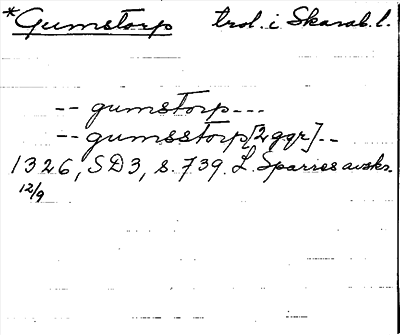 *Gumstorp trol. i Skarab. l.
-- gumstorp---
-- gumsstorp[2 ggr]--
1326, SD3, s. 739. L. Sparres avskr.
12/9